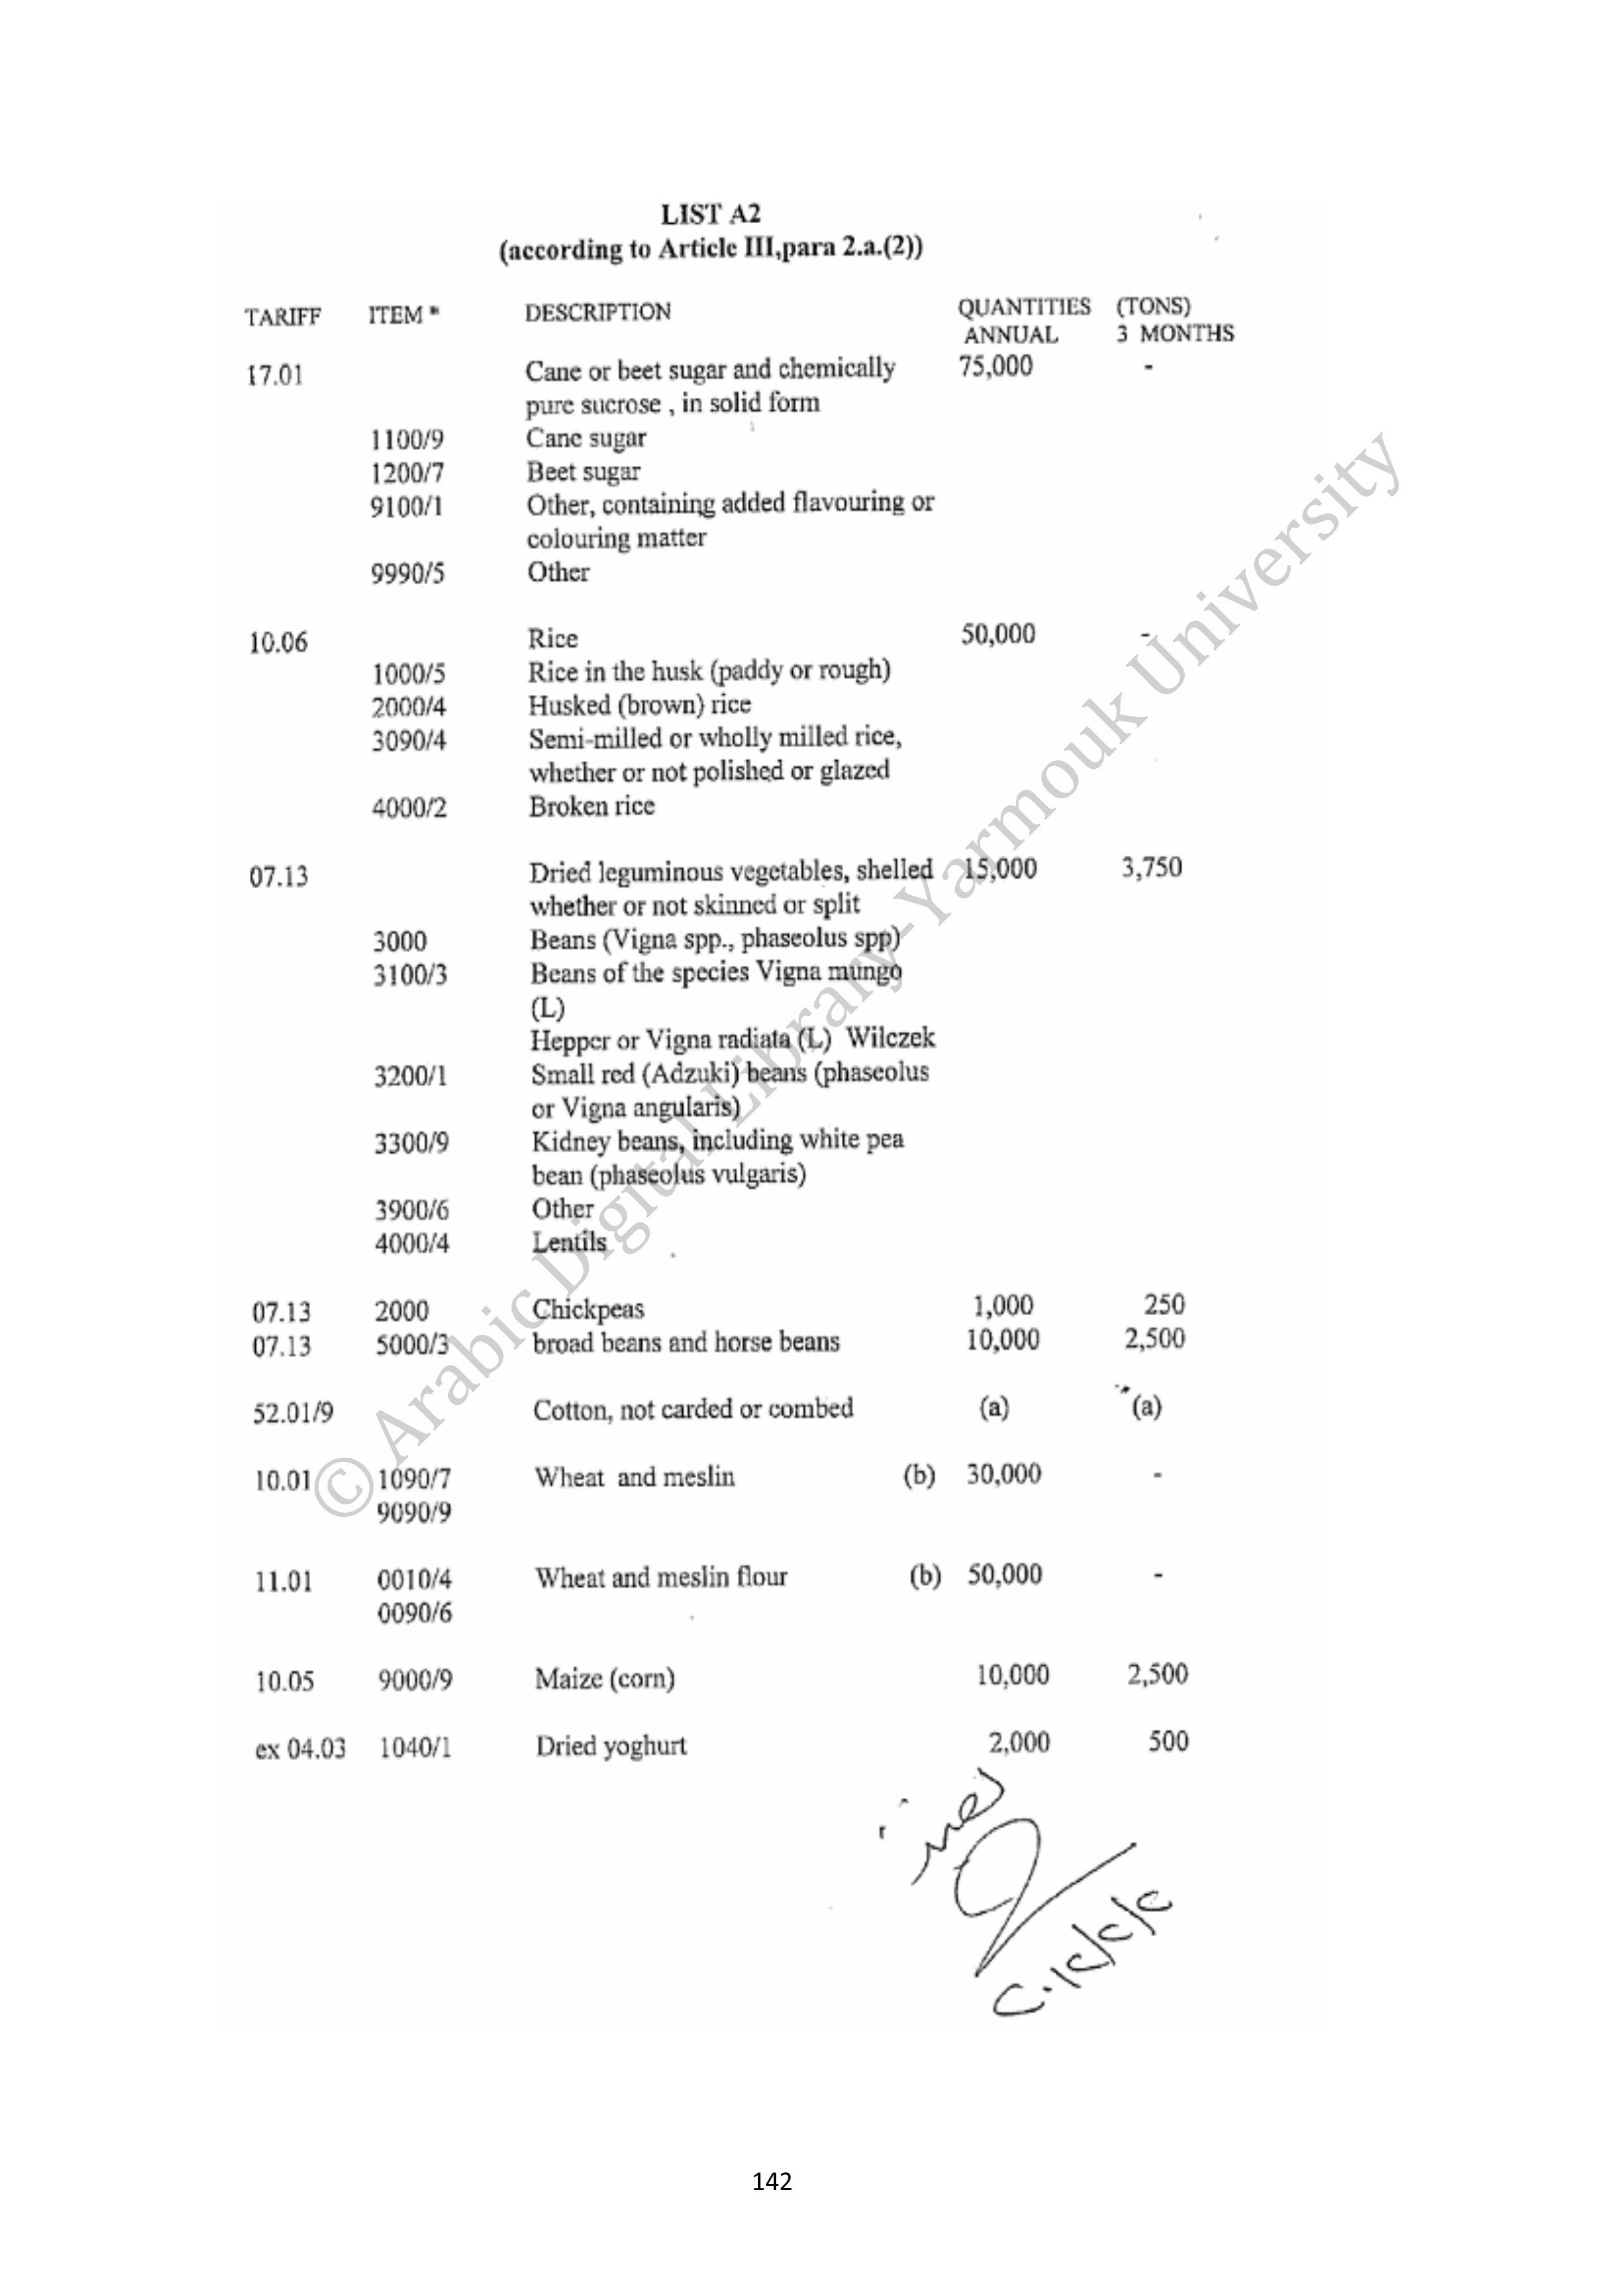 LIST A2
(according to Article III,para 2.a.(2))
TARIFF ITEM * DESCRIPTION QUANTITIES (TONS)
ANNUAL 3 MONTHS
17.01 Cane or beet sugar and chemically 75,000 -
pure sucrose , in solid form
1100/9 Cane sugar
1200/7 Beet sugar
9100/1 Other, containing added flavouring or
colouring matter
9990/5 Other
10.06 Rice 50,000 -
1000/5 Rice in the husk (paddy or rough)
2000/4 Husked (brown) rice
3090/4 Semi-milled or wholly milled rice,
whether or not polished or glazed
4000/2 Broken rice
07.13 Dried leguminous vegetables, shelled 15,000 3,750
whether or not skinned or split
3000 Beans (Vigna spp., phaseolus spp)
3100/3 Beans of the species Vigna mungo
(L)
Hepper or Vigna radiata (L) Wilczek
3200/1 Small red (Adzuki) beans (phaseolus
or Vigna angularis)
3300/9 Kidney beans, including white pea
bean (phaseolus vulgaris)
3900/6 Other
4000/4 Lentils
07.13 2000 Chickpeas 1,000 250
07.13 5000/3 broad beans and horse beans 10,000 2,500
52.01/9 Cotton, not carded or combed (a) (a)
10.01 1090/7 Wheat and meslin (b) 30,000 -
9090/9
11.01 0010/4 Wheat and meslin flour (b) 50,000 -
0090/6
10.05 9000/9 Maize (corn) 10,000 2,500
ex 04.03 1040/1 Dried yoghurt 2,000 500
© Arabic Digital Library-Yarmouk University
142